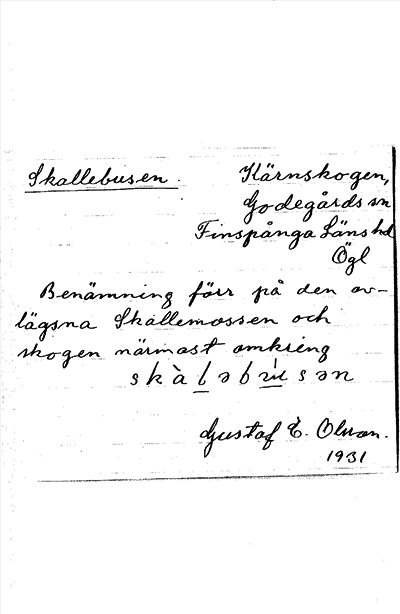 Skallebusen.
Kärnskogen,
Godegårds sn
Finspånga Läns hd
Ögl
Benämning förr på den av-
lägsna Skallemossen och
skogen närmast omkring
Gustaf E. Olson.
1931